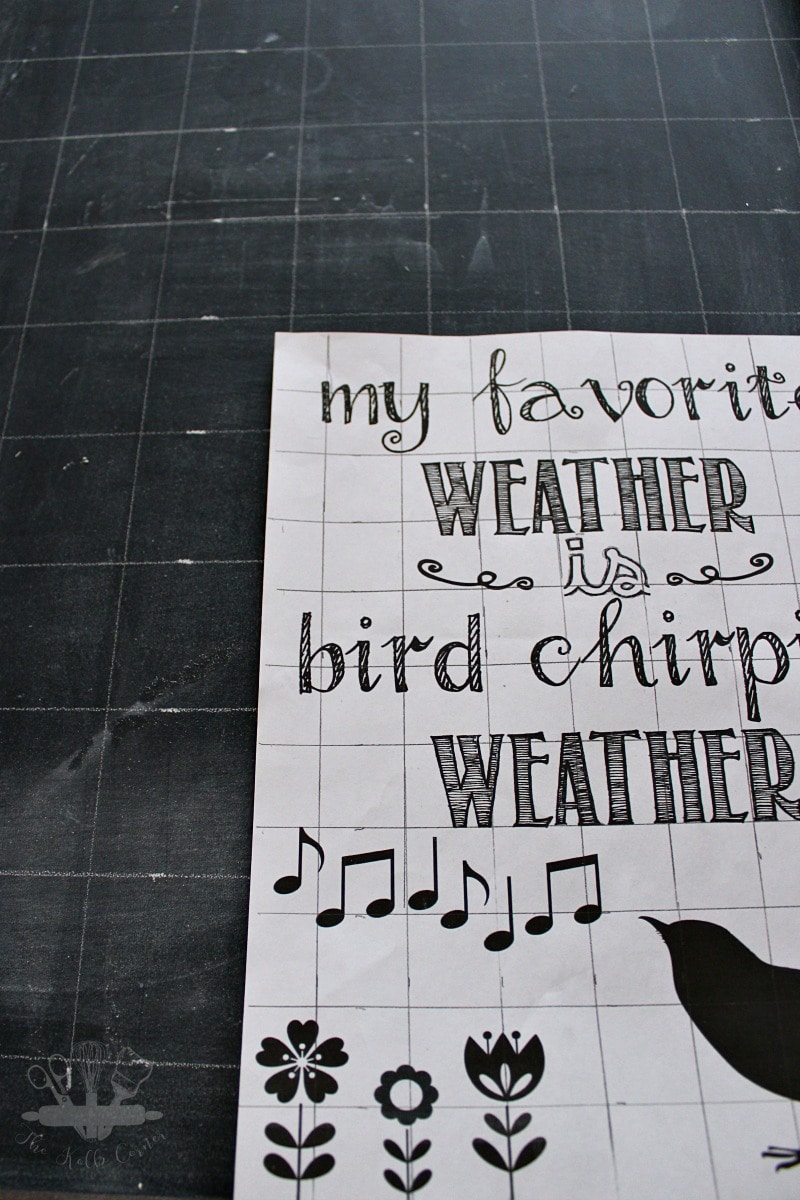 my favorite
WEATHER
is
bird chirpi
WEATHER
The Kolb Corner